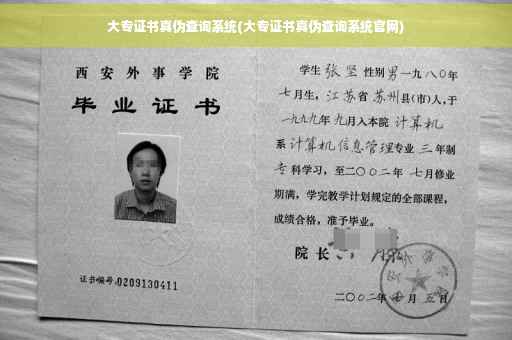 大专证书真伪查询系统(大专证书真伪查询系统官网)
西安外事学院
毕业证书
证书编号:0209130411
学生 张坚 性别 男 一九八〇年
七月生, 江苏省 苏州县(市)人,于
一九九九年 九月入本院 计算机
系 计算机信息管理专业 三 年制
专 科学习,至二〇〇二年 七月修业
期满,学完教学计划规定的全部课程,
成绩合格,准予毕业。
院长
二〇〇二年 月 五日